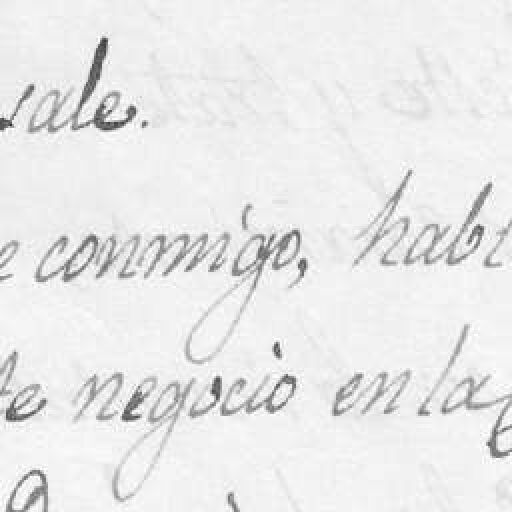 sale.
e conmigo, habl
te negocio en la